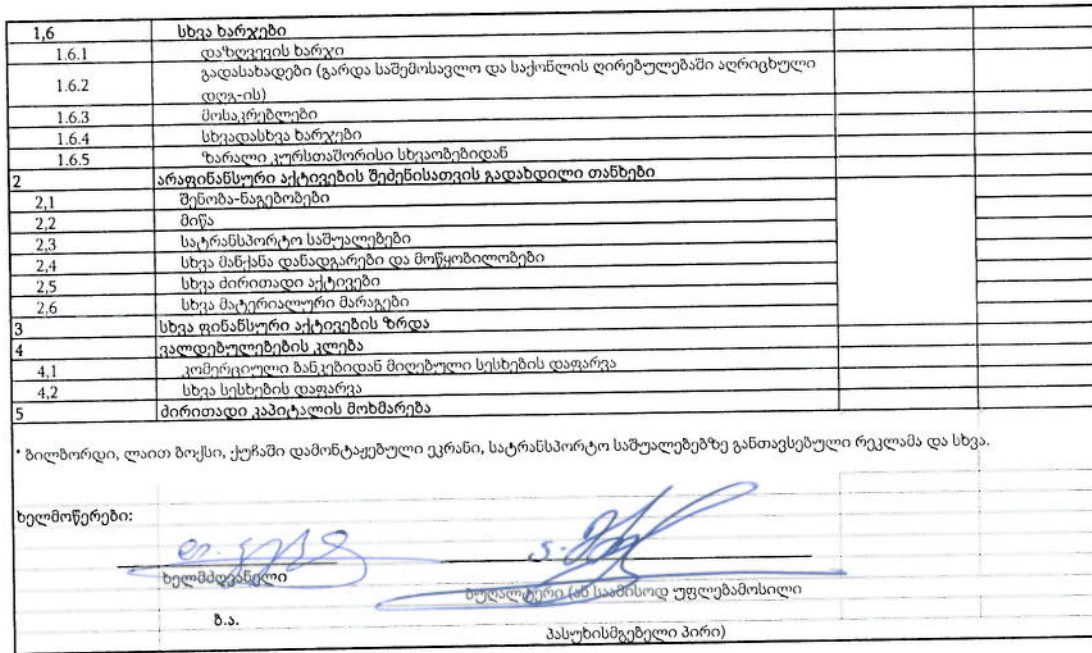 1,6 სხვა ხარჯები
1.6.1 დაზღვევის ხარჯი
1.6.2 გადასახადები (გარდა საშემოსავლო და საქონლის ღირებულებაში აღრიცხული
დღგ-ის)
1.6.3 მოსაკრებლები
1.6.4 სხვადასხვა ხარჯები
1.6.5 ზარალი კურსთაშორისი სხვაობებიდან
2 არაფინანსური აქტივების შეძენისათვის გადახდილი თანხები
2,1 შენობა-ნაგებობები
2,2 მიწა
2,3 სატრანსპორტო საშუალებები
2,4 სხვა მანქანა დანადგარები და მოწყობილობები
2,5 სხვა ძირითადი აქტივები
2,6 სხვა მატერიალური მარაგები
3 სხვა ფინანსური აქტივების ზრდა
4 ვალდებულებების კლება
4,1 კომერციული ბანკებიდან მიღებული სესხების დაფარვა
4,2 სხვა სესხების დაფარვა
5 ძირითადი კაპიტალის მოხმარება
* ბილბორდი, ლაით ბოქსი, ქუჩაში დამონტაჟებული ეკრანი, სატრანსპორტო საშუალებებზე განთავსებული რეკლამა და სხვა.
ხელმოწერები:
ხელმძღვანელი
ბუღალტერი (ან საამისოდ უფლებამოსილი
ბ.ა.
პასუხისმგებელი პირი)